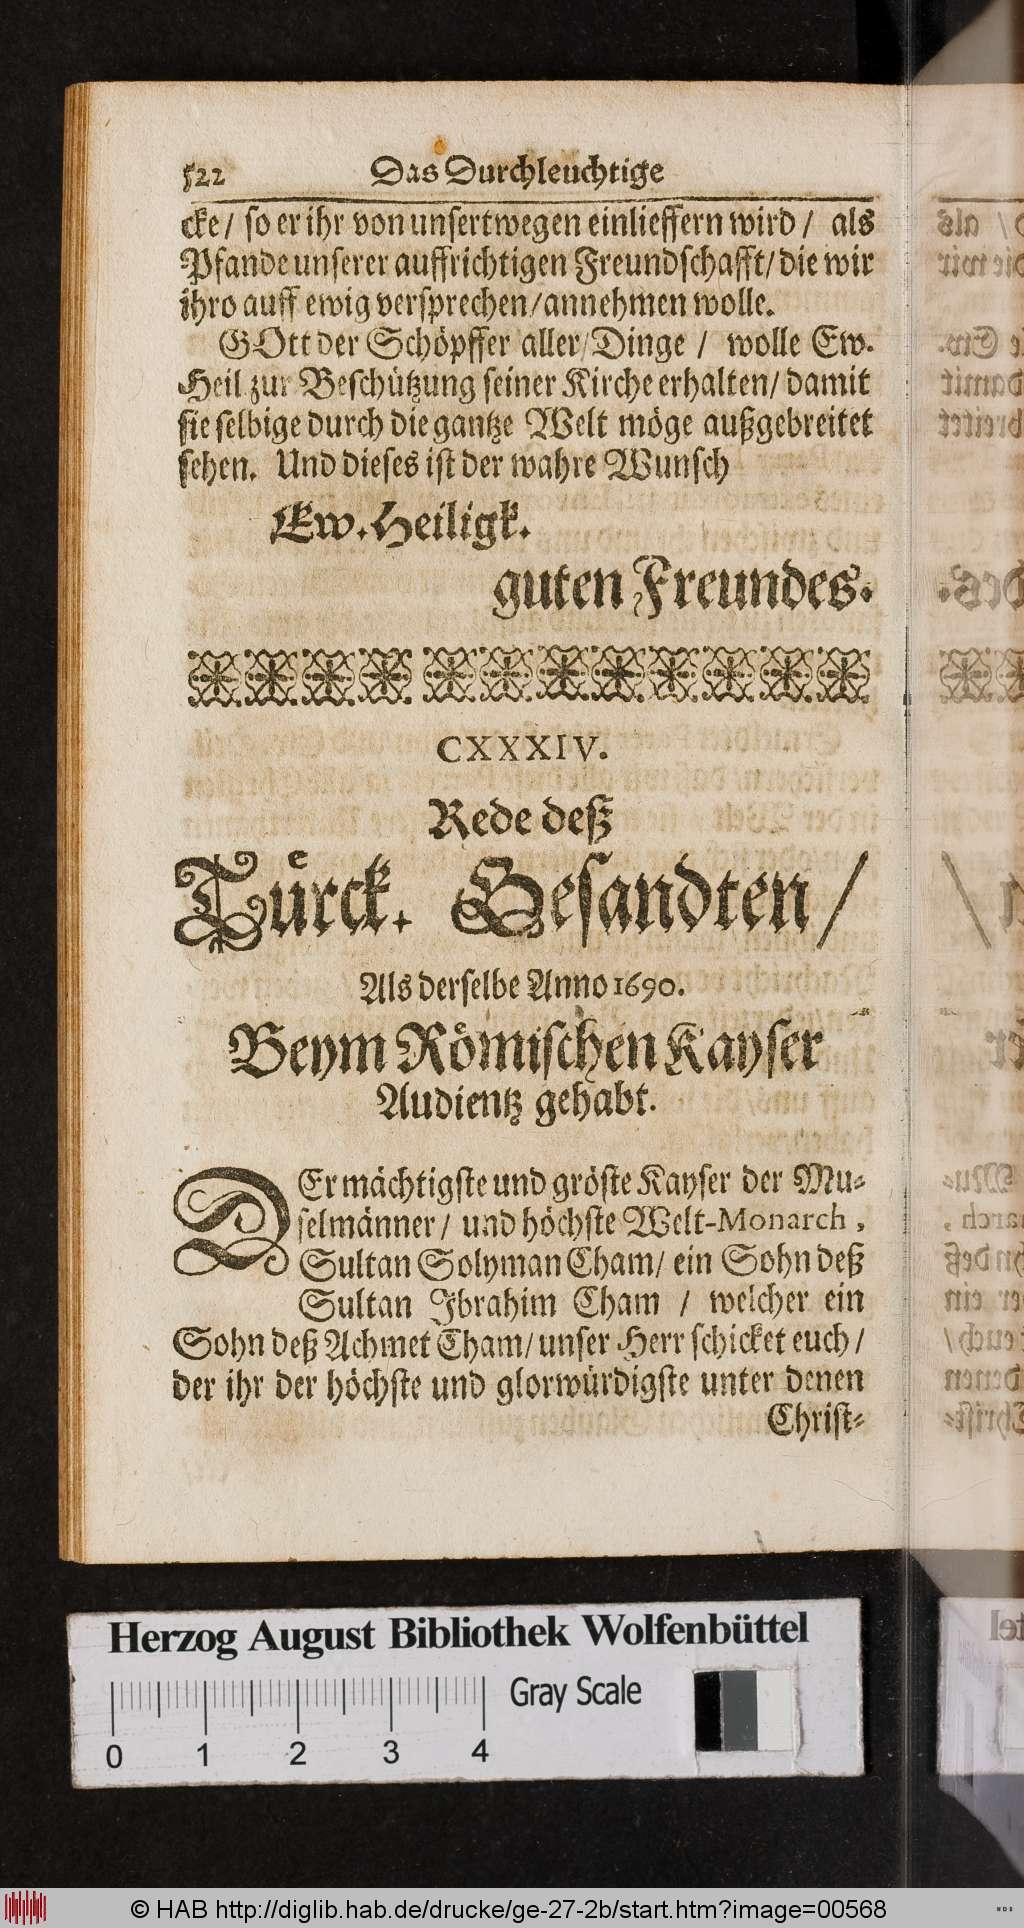 522 Das Durchleuchtige
cke / so er ihr von unsertwegen einlieffern wird / als
Pfande unserer auffrichtigen Freundschafft / die wir
ihro auff ewig versprechen / annehmen wolle.
GOtt der Schöpffer aller / Dinge / wolle Ew.
Heil zur Beschützung seiner Kirche erhalten / damit
sie selbige durch die gantze Welt möge außgebreitet
sehen. Und dieses ist der wahre Wunsch
Ew. Heiligk.
guten Freundes.
CXXXIV.
Rede deß
Tuͤrck. Gesandten /
Als derselbe Anno 1690.
Beym Roͤmischen Kayser
Audientz gehabt.
DEr mächtigste und gröste Kayser der Mu-
selmänner / und höchste Welt-Monarch,
Sultan Solyman Cham / ein Sohn deß
Sultan Ibrahim Cham / welcher ein
Sohn deß Achmet Cham / unser Herr schicket euch /
der ihr der höchste und glorwürdigste unter denen
Christ-
Herzog August Bibliothek Wolfenbüttel
Gray Scale
0 1 2 3 4
© HAB http://diglib.hab.de/drucke/ge-27-2b/start.htm?image=00568